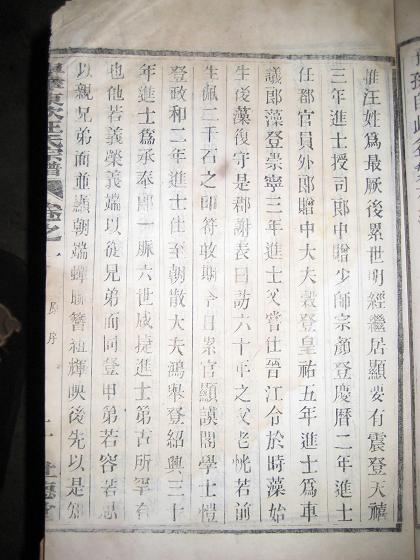 惟汪姓爲最厥後累世明經繼居顯要有震登天禧
三年進士授司郎中贈少師宗顏登慶曆二年進士
任都官員外郎贈中大夫穀登皇祐五年進士爲車
議郎藻登崇寧三年進士父嘗仕晉江令於時藻始
生後藻復守是郡謝表曰訪六十年之父老恍若前
生佩二千石之印符收期今日累官顯謨閣學士愷
登政和二年進士仕至朝散大夫鴻舉登紹興三十
年進士爲承奉郎一脈六世咸捷進士第古所罕有
也他若義榮義端以從兄弟而同登甲第若容若思
以親兄弟而並顯朝端蟬聯簪組煇映後先以是知
汪氏宗譜 卷之一 序